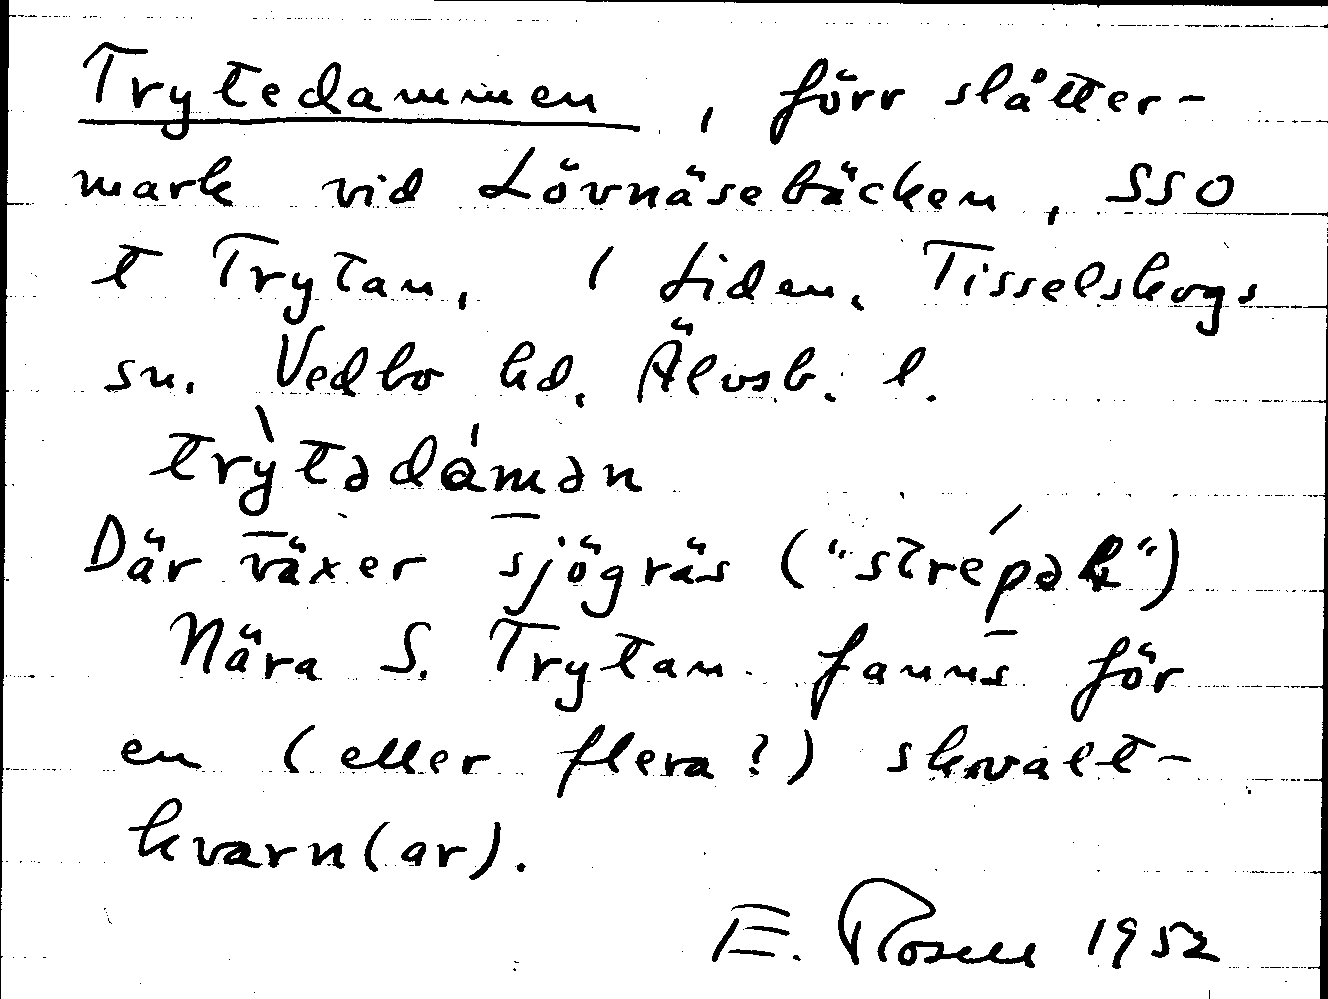 Trytedammen, förr slåtter-
mark vid Lövnäsebäcken, SSO
t Trytan, 1 Liden, Tisselskogs
sn. Vedbo hd, Älvsb. l.
trỳtədámən
Där växer sjögräs ("strépək")
Nära S. Trytan fanns för
en (eller flera?) skvalt-
kvarn(ar).
E. Rosell 1952